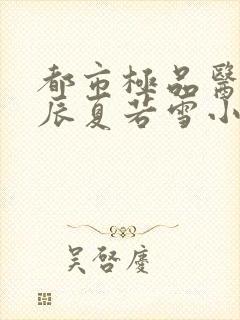 都市極品醫
辰夏若雪小
吴啓慶